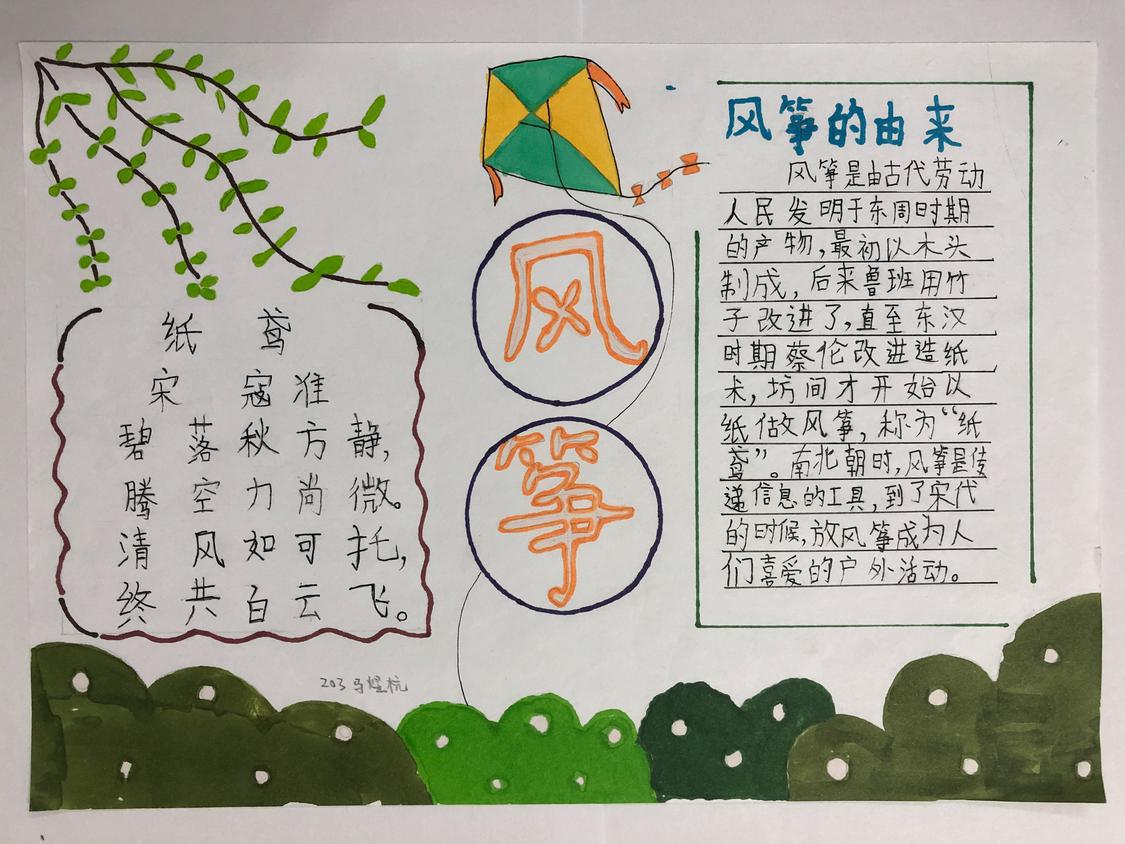 纸鸢
宋 寇准
碧落秋方静,
腾空力尚微。
清风如可托,
终共白云飞。
203 马煜杭
风
筝
风筝的由来
风筝是由古代劳动
人民发明于东周时期
的产物,最初以木头
制成,后来鲁班用竹
子改进了,直至东汉
时期蔡伦改进造纸
术,坊间才开始以
纸做风筝,称为“纸
鸢”。南北朝时,风筝是传
递信息的工具,到了宋代
的时候,放风筝成为人
们喜爱的户外活动。